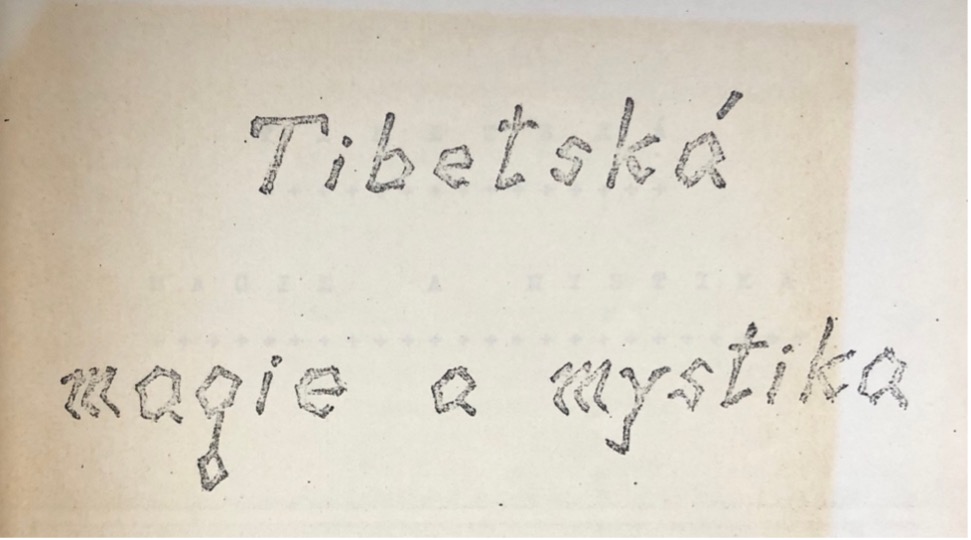 Tibetská
magie a mystika